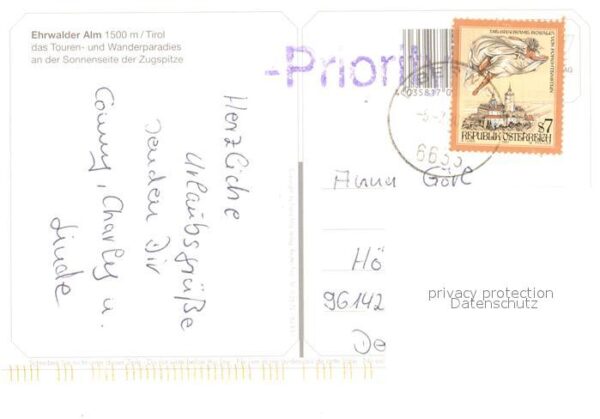 Ehrwalder Alm 1500 m / Tirol
das Touren- und Wanderparadies
an der Sonnenseite der Zugspitze
Herzliche
Urlaubsgrüße
senden Dir
Conny, Charly u.
Linde
-Priorit
6633
S7
REPUBLIK ÖSTERREICH
Anna Görl
Hö
96142
De
privacy protection
Datenschutz